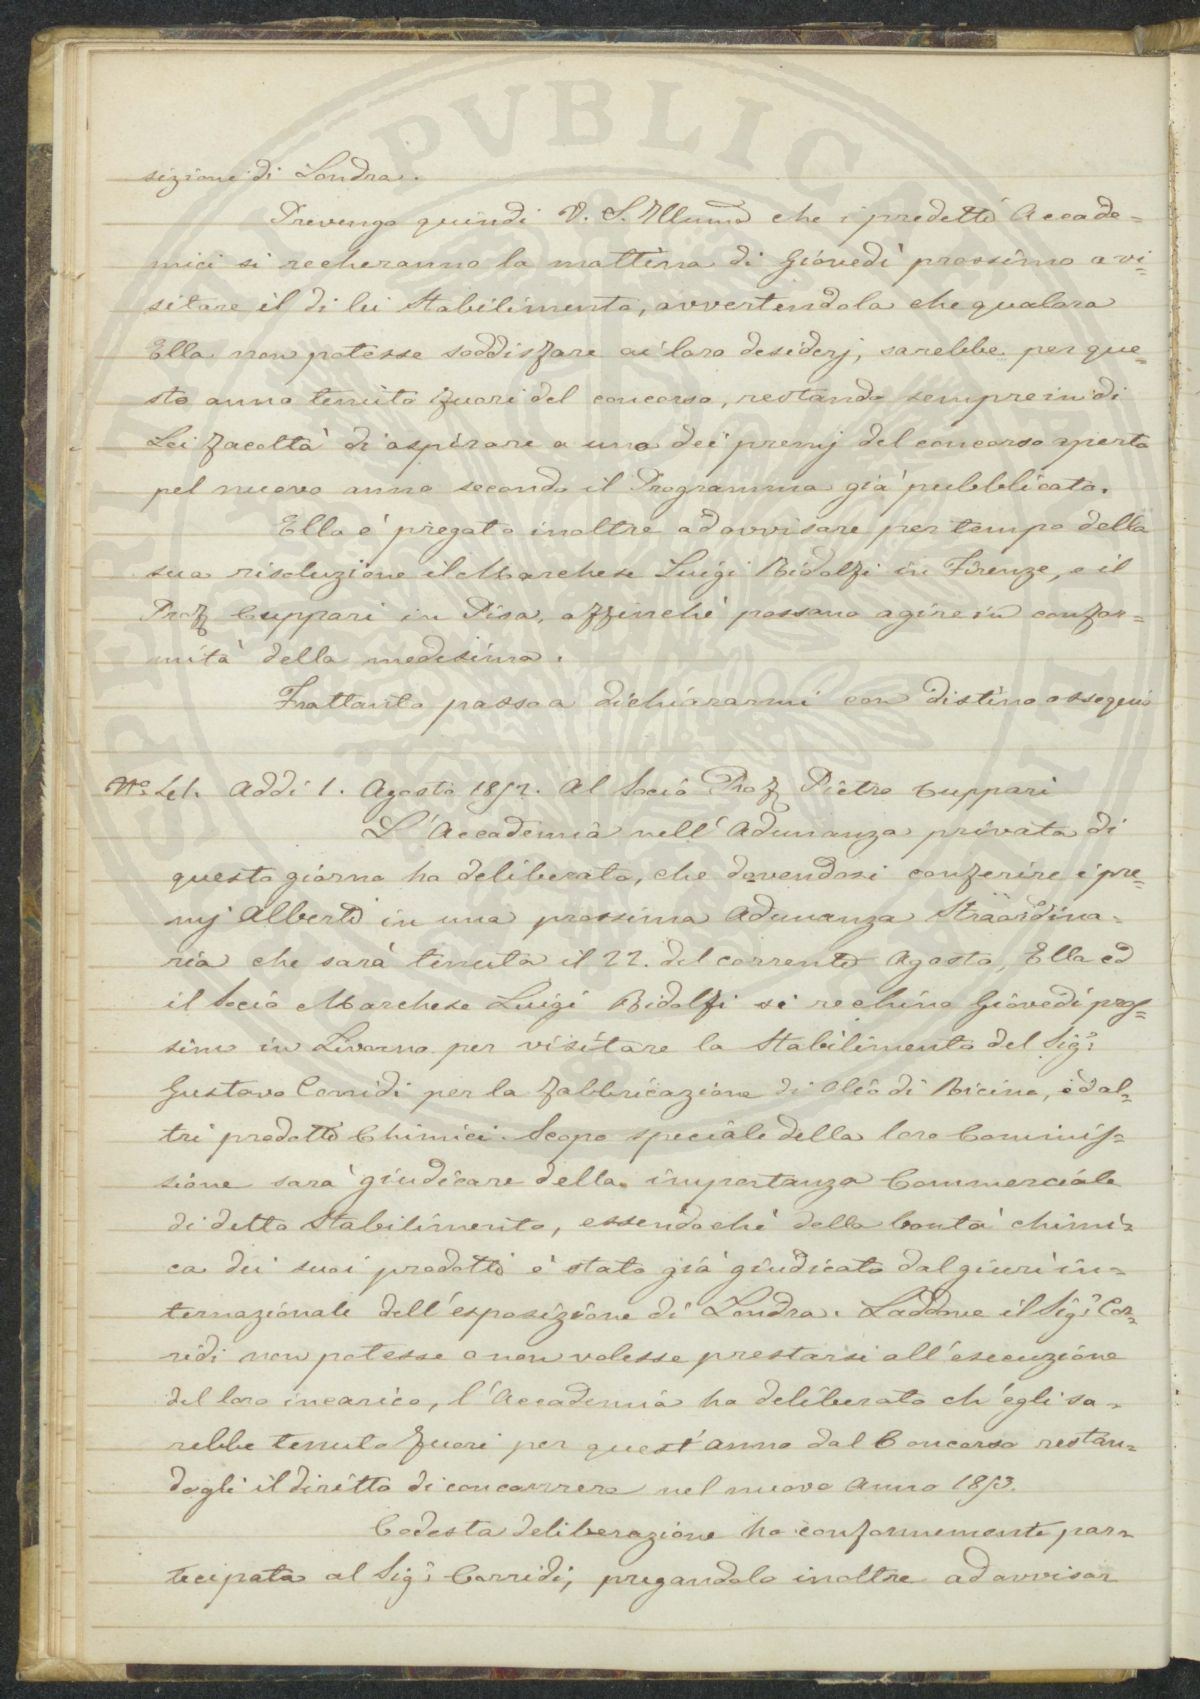 sizione di Londra.
Prevengo quindi V. S. Illuma che i predetti Accade=
mici si recheranno la mattina di Giovedì prossimo a vi=
sitare il di lei Stabilimento, avvertendola che qualora
Ella non potesse soddisfare ai loro desiderj, sarebbe per que=
sto anno tenuto fuori del concorso, restando sempre in di
Lei facoltà di aspirare a uno dei premj del concorso aperto
pel nuovo anno secondo il Programma già pubblicato.
Ella è pregato inoltre ad avvisare per tempo della
sua risoluzione il Marchese Luigi Ridolfi in Firenze, e il
Prof Cuppari in Pisa, affinchè possano agire in confor=
mità della medesima.
Frattanto passo a dichiararmi con distino ossequio
No. 41. Addi 1. Agosto 1852. Al Socio Prof Pietro Cuppari
L'Accademia nell'Adunanza privata di
questo giorno ha deliberato, che dovendosi conferire i pre=
mj Alberti in una prossima Adunanza Straordina=
ria che sarà tenuta il 22. del corrente Agosto, Ella ed
il Socio Marchese Luigi Ridolfi si rechino Giovedì pros=
simo in Livorno per visitare lo Stabilimento del Sigr
Gustavo Corridi per la fabbricazione di Olio di Ricino, ed al=
tri prodotti Chimici. Scopo speciale della loro Commis=
sione sarà giudicare della importanza Commerciale
di detto Stabilimento, essendochè della bontà chimi=
ca dei suoi prodotti è stato già giudicato dal giurì in=
ternazionale dell'esposizione di Londra. Laddove il Sigr Cor=
ridi non potesse o non volesse prestarsi all'esecuzione
del loro incarico, l'Accademia ha deliberato ch'egli sa=
rebbe tenuto fuori per quest'anno dal Concorso restan=
dogli il diritto di concorrere nel nuovo Anno 1853.
Codesta deliberazione ho conformemente par=
tecipata al Sigr Corridi, pregandolo inoltre ad avvisar